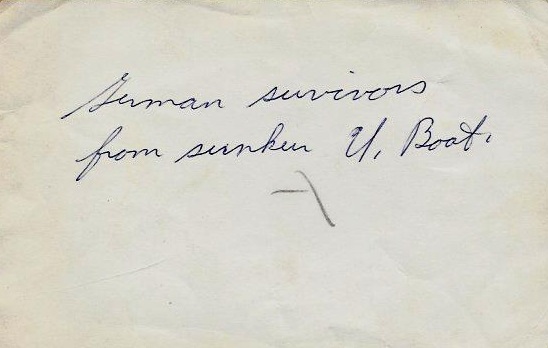 German survivors
from sunken U, Boat.